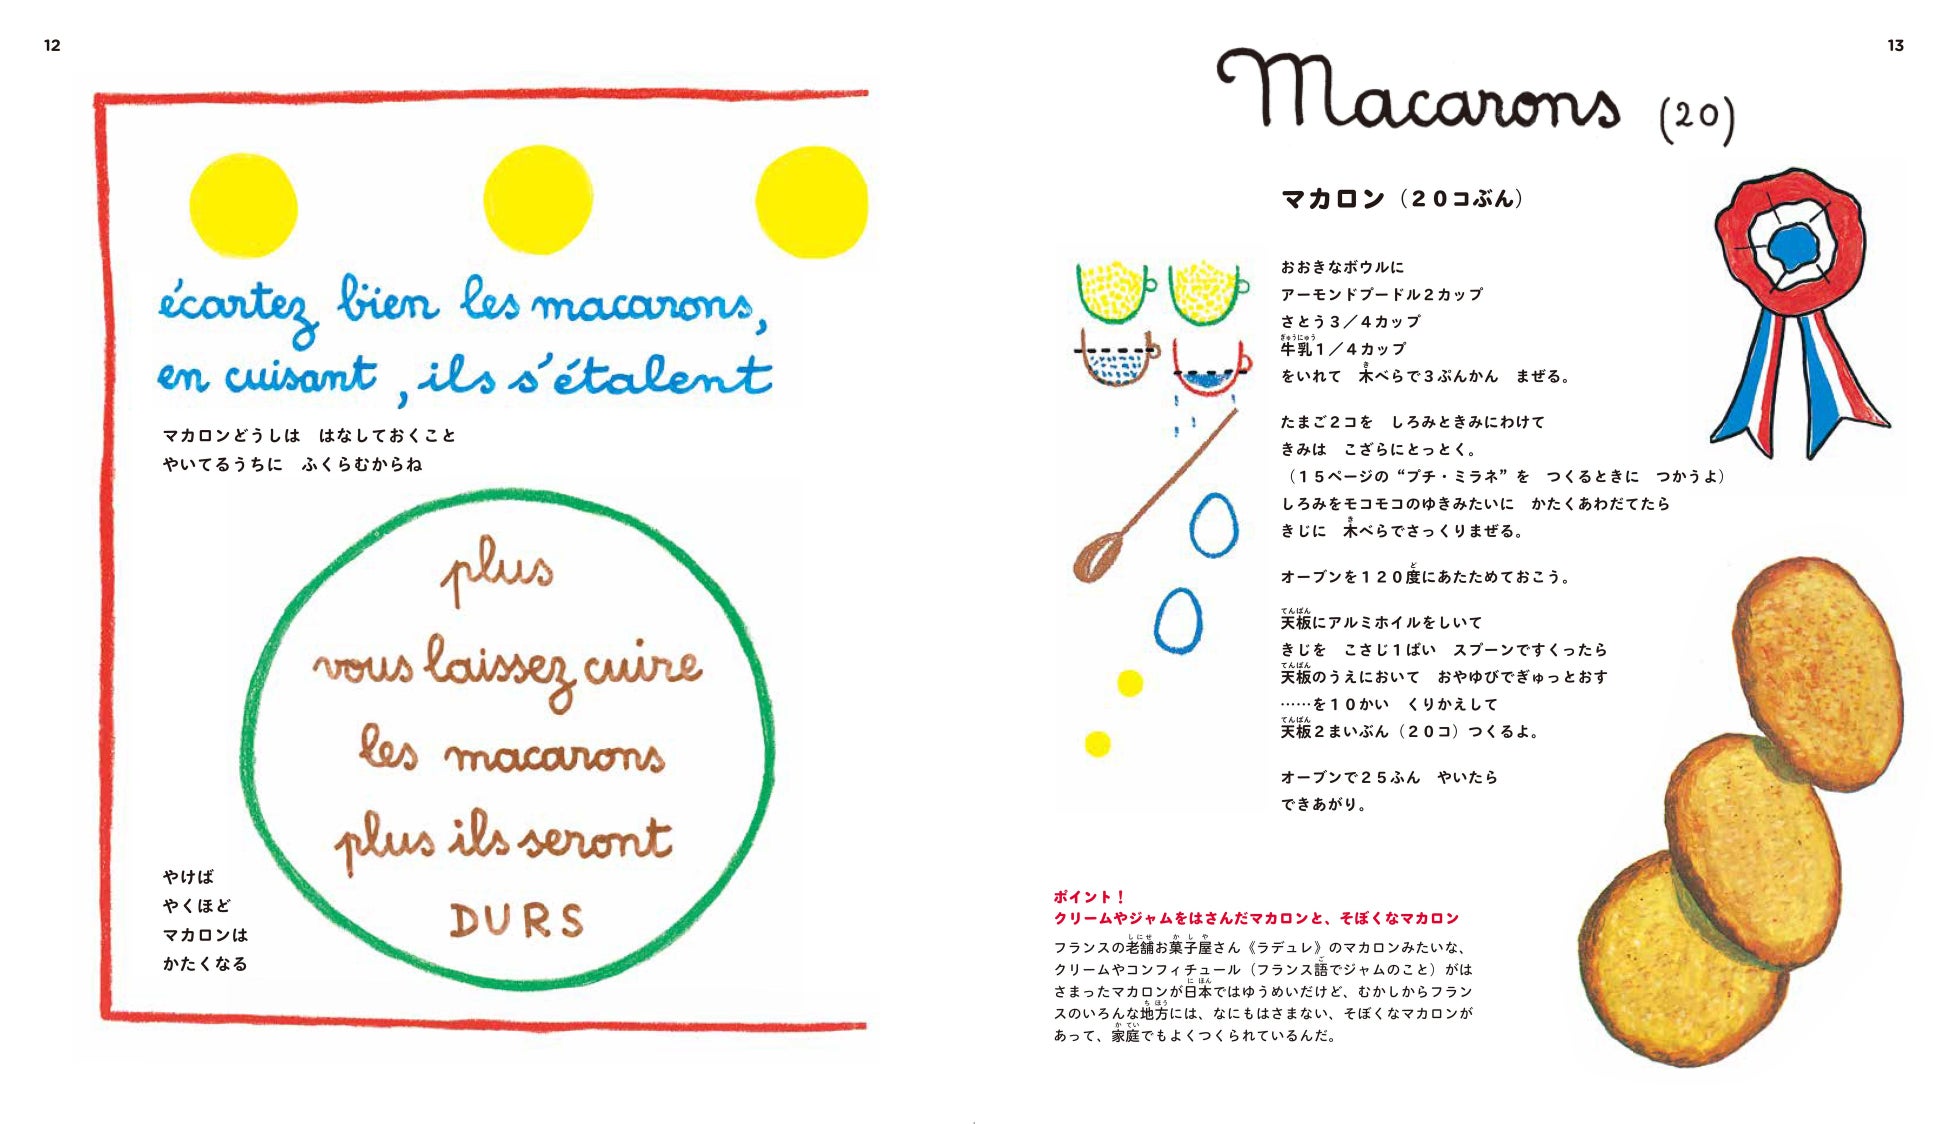 12
écartez bien les macarons,
en cuisant, ils s'étalent
マカロンどうしは　はなしておくこと
やいてるうちに　ふくらむからね
plus
vous laissez cuire
les macarons
plus ils seront
DURS
やけば
やくほど
マカロンは
かたくなる
13
Macarons (20)
マカロン（２０コぶん）
おおきなボウルに
アーモンドプードル２カップ
さとう３／４カップ
ぎゅうにゅう
牛乳１／４カップ
き
をいれて　木べらで３ぷんかん　まぜる。
たまご２コを　しろみときみにわけて
きみは　こざらにとっとく。
（１５ページの“プチ・ミラネ”を　つくるときに　つかうよ）
しろみをモコモコのゆきみたいに　かたくあわだてたら
き
きじに　木べらでさっくりまぜる。
ど
オーブンを１２０度にあたためておこう。
てんぱん
天板にアルミホイルをしいて
きじを　こさじ１ぱい　スプーンですくったら
てんぱん
天板のうえにおいて　おやゆびでぎゅっとおす
……を１０かい　くりかえして
てんぱん
天板２まいぶん（２０コ）つくるよ。
オーブンで２５ふん　やいたら
できあがり。
ポイント！
クリームやジャムをはさんだマカロンと、そぼくなマカロン
しにせ　かしや
フランスの老舗お菓子屋さん《ラデュレ》のマカロンみたいな、
ご
クリームやコンフィチュール（フランス語でジャムのこと）がは
にほん
さまったマカロンが日本ではゆうめいだけど、むかしからフラン
ちほう
スのいろんな地方には、なにもはさまない、そぼくなマカロンが
かてい
あって、家庭でもよくつくられているんだ。